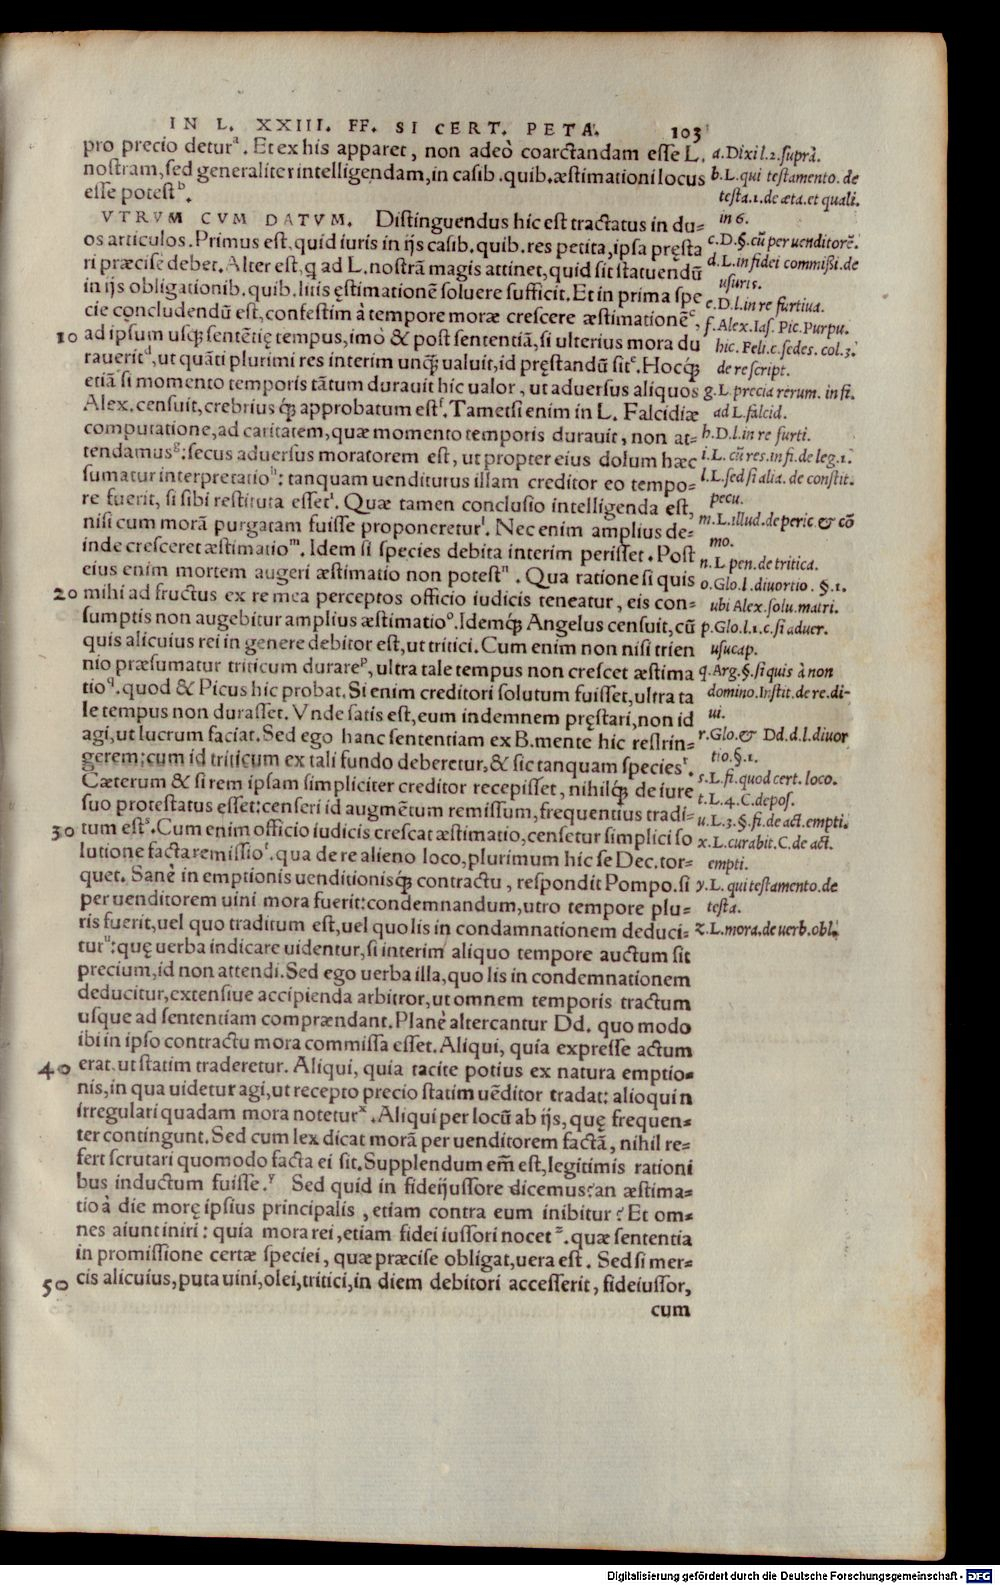 IN L. XXIII. FF. SI CERT. PETA. 103
pro precio deturᵃ. Et ex his apparet, non adeò coarctandam esse L.
nostram, sed generaliter intelligendam, in casib. quib. æstimationi locus
esse potestᵇ.
VTRVM CVM DATVM. Distinguendus hic est tractatus in du=
os articulos. Primus est, quid iuris in ijs casib. quib. res petita, ipsa pręsta
ri præcise debet. Alter est, q̄ ad L. nostrā magis attinet, quid sit statuendū
in ijs obligationib. quib. litis ęstimationē soluere sufficit. Et in prima spe
cie concludendū est, confestim à tempore moræ crescere æstimationēᶜ,
10 ad ipsum usq; sentētię tempus, imò & post sententiā, si ulterius mora du
raueritᵈ, ut quāti plurimi res interim unq̄ ualuit, id pręstandū sitᵉ. Hocq́;
etiā si momento temporis tātum durauit hic ualor, ut aduersus aliquos
Alex. censuit, crebrius q́; approbatum estᶠ. Tametsi enim in L. Falcidiæ
computatione, ad caritatem, quæ momento temporis durauit, non at=
tendamusᵍ: secus aduersus moratorem est, ut propter eius dolum hæc
sumatur interpretatioʰ: tanquam uenditurus illam creditor eo tempo=
re fuerit, si sibi restituta essetⁱ. Quæ tamen conclusio intelligenda est,
nisi cum morā purgatam fuisse proponereturˡ. Nec enim amplius de=
inde cresceret æstimatioᵐ. Idem si species debita interim perisset. Post
eius enim mortem augeri æstimatio non potestⁿ. Qua ratione si quis
20 mihi ad fructus ex re mea perceptos officio iudicis teneatur, eis con=
sumptis non augebitur amplius æstimatioᵒ. Idemq́; Angelus censuit, cū
quis alicuius rei in genere debitor est, ut tritici. Cum enim non nisi trien
nio præsumatur triticum durareᵖ, ultra tale tempus non crescet æstima
tio q. quod & Picus hic probat. Si enim creditori solutum fuisset, ultra ta
le tempus non durasset. Vnde satis est, eum indemnem pręstari, non id
agi, ut lucrum faciat. Sed ego hanc sententiam ex B. mente hic restrin=
gerem: cum id triticum ex tali fundo deberetur, & sic tanquam speciesʳ.
Cæterum & si rem ipsam simpliciter creditor recepisset, nihilq́; de iure
suo protestatus esset: censeri id augmētum remissum, frequentius tradi=
30 tum estˢ. Cum enim officio iudicis crescat æstimatio, censetur simplici so
lutione facta remissioᵗ. qua de re alieno loco, plurimum hic se Dec. tor=
quet. Sanè in emptionis uenditionisq́; contractu, respondit Pompo. si
per uenditorem uini mora fuerit: condemnandum, utro tempore plu=
ris fuerit, uel quo traditum est, uel quo lis in condamnationem deduci=
turᵘ: quę uerba indicare uidentur, si interim aliquo tempore auctum sit
precium, id non attendi. Sed ego uerba illa, quo lis in condemnationem
deducitur, extensiue accipienda arbitror, ut omnem temporis tractum
usque ad sententiam comprændant. Planè altercantur Dd. quo modo
ibi in ipso contractu mora commissa esset. Aliqui, quia expresse actum
40 erat, ut statim traderetur. Aliqui, quia tacite potius ex natura emptio=
nis, in qua uidetur agi, ut recepto precio statim uēditor tradat: alioqui n
irregulari quadam mora noteturˣ. Aliqui per locū ab ijs, quę frequen=
ter contingunt. Sed cum lex dicat morā per uenditorem factā, nihil re=
fert scrutari quomodo facta ei sit. Supplendum em̄ est, legitimis rationi
bus inductum fuisse.ʸ Sed quid in fideijussore dicemus? an æstima=
tio à die morę ipsius principalis, etiam contra eum inibitur? Et om=
nes aiunt iniri: quia mora rei, etiam fidei iussori nocetᶻ. quæ sententia
in promissione certæ speciei, quæ præcise obligat, uera est. Sed si mer=
50 cis alicuius, puta uini, olei, tritici, in diem debitori accesserit, fideiussor,
cum
a. Dixi l.2. suprà.
b. L. qui testamento. de
testa. 1. de æta. et quali.
in 6.
c. D. §. cū per uenditorē.
d. L. in fidei commißi. de
usuris.
e. D. l. in re furtiua.
f. Alex. Ias. Pic. Purpu.
hic. Feli. c. sedes. col. 3.
de rescript.
g. L. precia rerum. in fi.
ad L. falcid.
h. D. l. in re furti.
i. L. cū res. in fi. de leg. 1.
l. L. sed si alia. de constit.
pecu.
m. L. illud. de peric. & cō
mo.
n. L. pen. de tritica.
o. Glo. l. diuortio. §. 1.
ubi Alex. solu. matri.
p. Glo. l. 1. c. si aduer.
usucap.
q. Arg. §. si quis à non
domino. Instit. de re. di-
ui.
r. Glo. & Dd. d. l. diuor
tio. §. 1.
s. L. fi. quod cert. loco.
t. L. 4. C. depos.
u. L. 3. §. fi. de act. empti.
x. L. curabit. C. de act.
empti.
y. L. qui testamento. de
testa.
z. L. mora. de uerb. obl.
Digitalisierung gefördert durch die Deutsche Forschungsgemeinschaft - DFG